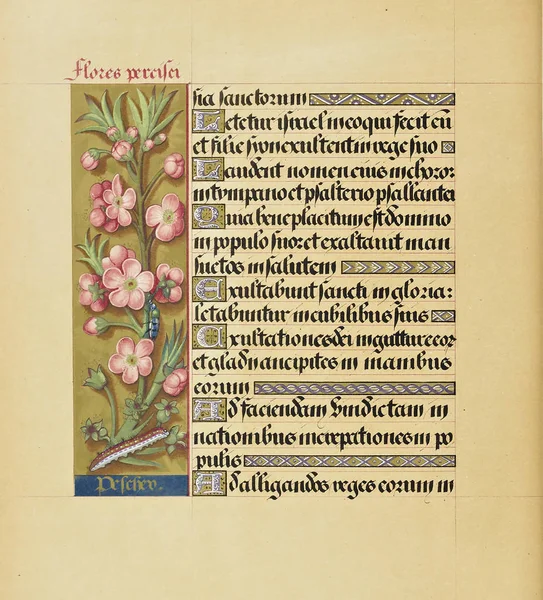 Flores percisei
sia sanctorum
Letetur israel in eo qui fecit eū
et filie sion exultent in rege suo
Laudent nomen eius in choro:
in tympano et psalterio psallant ei
Quia bene placitum est domino
in populo suo: et exaltauit man
suetos in salutem
Exultabunt sancti in gloria:
letabuntur in cubilibus suis
Exultationes dei in gutture eor
et gladii ancipites in manibus
eorum
Ad faciendam vindictam in
nationibus increpationes in po
pulis
Ad alligandos reges eorum in
Pescher.